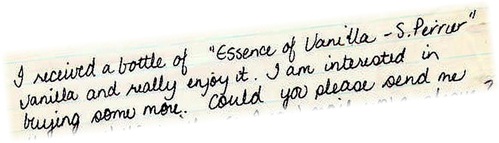 I received a bottle of "Essence of Vanilla - S. Perrier"
vanilla and really enjoy it. I am interested in
buying some more. Could you please send me